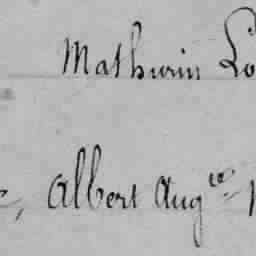 Mathurin Lo
, Albert Aug